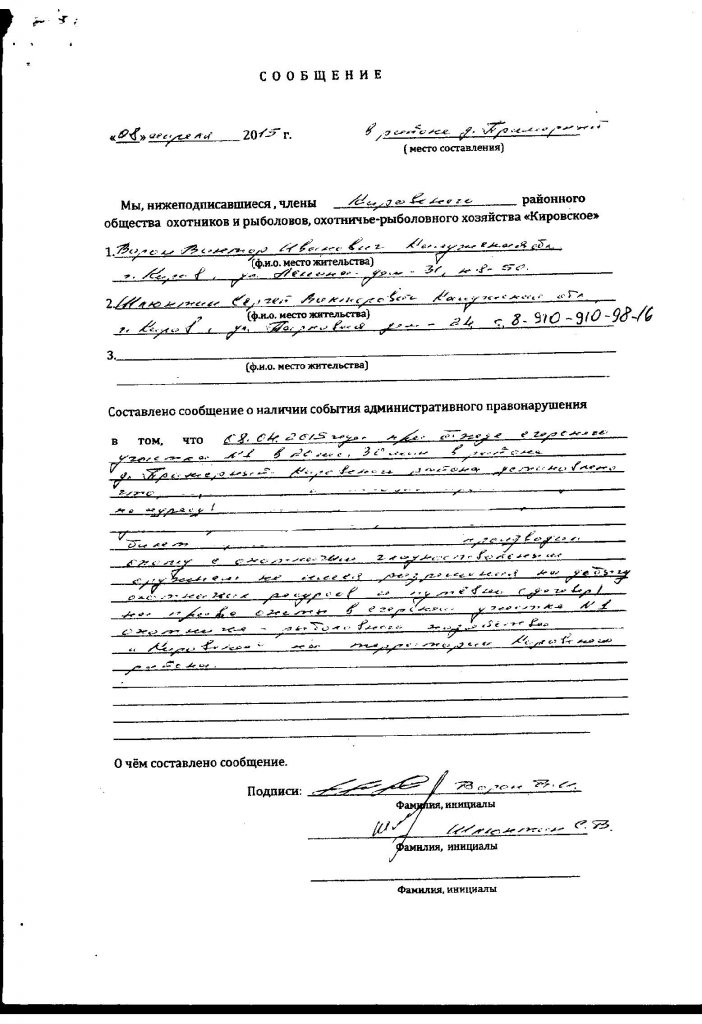 СООБЩЕНИЕ
«08» апреля 2015 г. в районе д. Примерный
( место составления)
Мы, нижеподписавшиеся , члены Кировского районного
общества охотников и рыболовов, охотничье-рыболовного хозяйства «Кировское»
1. Ворон Виктор Иванович Калужская обл
(ф.и.о. место жительства)
г. Киров, ул. Ленина дом - 31, к 8 - 50.
2. Сергей Викторович Калужская обл,
(ф.и.о. место жительства)
г. Киров, ул. дом - 24 с. 8-910-910-98-16
3.
(ф.и.о. место жительства)
Составлено сообщение о наличии события административного правонарушения
в том, что 08.04.2015 года при егерского
участка №1 в 20 час. 30 мин в районе
д. Примерный Кировского района установлено
что,
по адресу!
билет , производил
охоту с охотничьим гладкоствольным
оружием не имея разрешения на добычу
охотничьих ресурсов и путёвки (договор)
на право охоты в егерском участке №1
охотничье - рыболовного хозяйства
«Кировское» на территории Кировского
района.
О чём составлено сообщение.
Подписи: Ворон В.И.
Фамилия, инициалы
С.В.
Фамилия, инициалы
Фамилия, инициалы